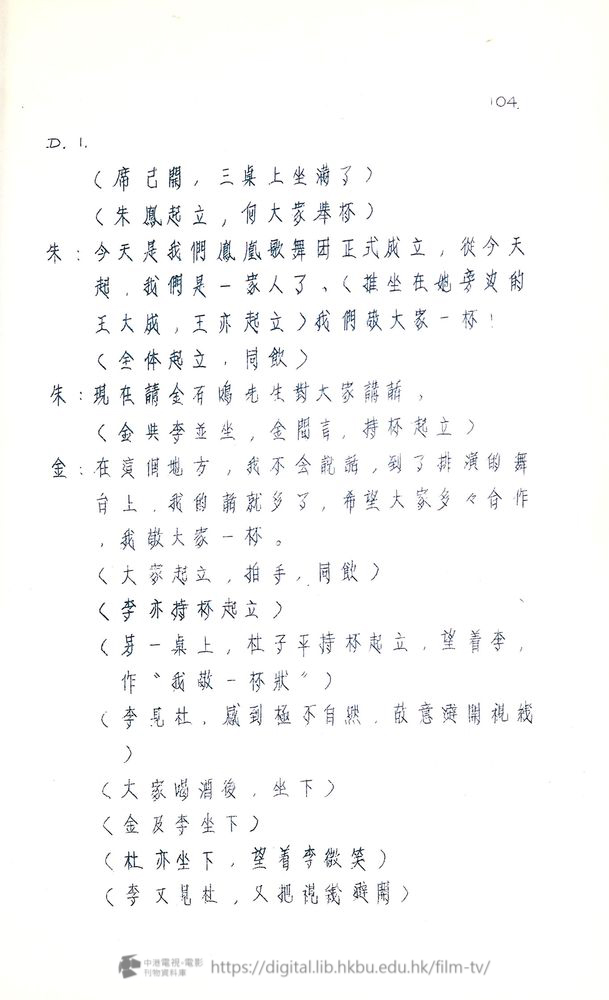 104.
D. 1.
（席已開，三桌上坐滿了）
（朱鳳起立，向大家舉杯）
朱：今天是我們鳳凰歌舞团正式成立，從今天
起，我們是一家人了、（推坐在她旁边的
王大成，王亦起立）我們敬大家一杯！
（全体起立，同飲）
朱：現在請金石鳴先生對大家講話，
（金與李並坐，金聞言，持杯起立）
金：在這個地方，我不会說話，到了排演的舞
台上，我的話就多了，希望大家多々合作
，我敬大家一杯。
（大家起立，拍手，同飲）
（李亦持杯起立）
（另一桌上，杜子平持杯起立，望着李，
作“我敬一杯狀”）
（李見杜，感到極不自然，故意避開視綫
）
（大家喝酒後，坐下）
（金及李坐下）
（杜亦坐下，望着李微笑）
（李又見杜，又把視綫避開）
中港電視·電影
刊物資料庫
https://digital.lib.hkbu.edu.hk/film-tv/